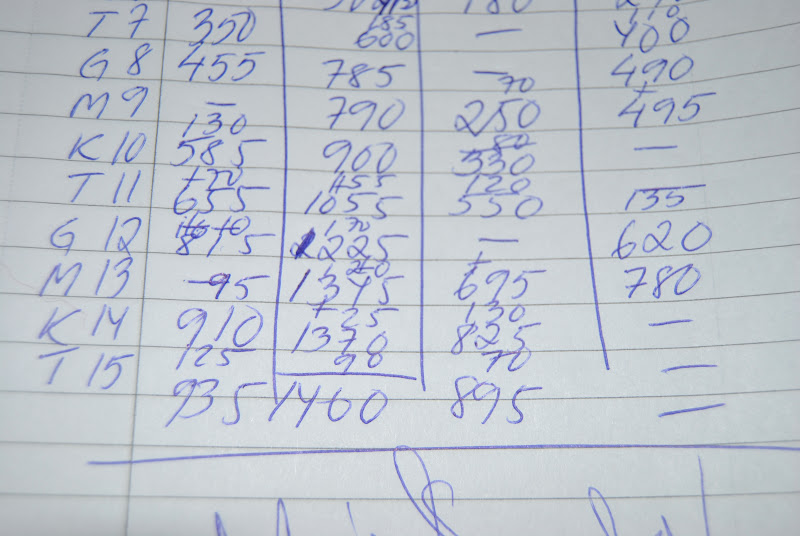 180
T 7 350 185 — 110
600 400
G 8 455 785 — 490
M 9 — 790 70 +
130 250 495
K 10 585 900 80 —
+70 155 330
T 11 655 1055 120 135
550
G 12 815 170 — 620
1225
M 13 —95 1345 + 780
695
K 14 910 +25 130 —
1370 825
T 15 125 90 70 —
935 1460 895 —